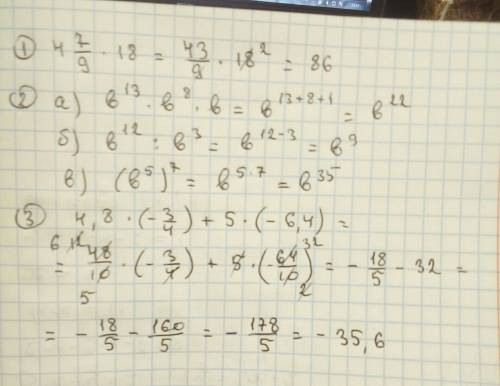 ① 4 7/9 · 18 = 43/9 · 18 2 = 86
② а) в^13 · в^8 · в = в^(13+8+1) = в^22
б) в^12 : в^3 = в^(12-3) = в^9
в) (в^5)^7 = в^(5·7) = в^35
③ 4,8 · (-3/4) + 5 · (-6,4) =
= 48/10 · (-3/4) + 5 · (-64/10) = -18/5 - 32 =
= -18/5 - 160/5 = -178/5 = -35,6